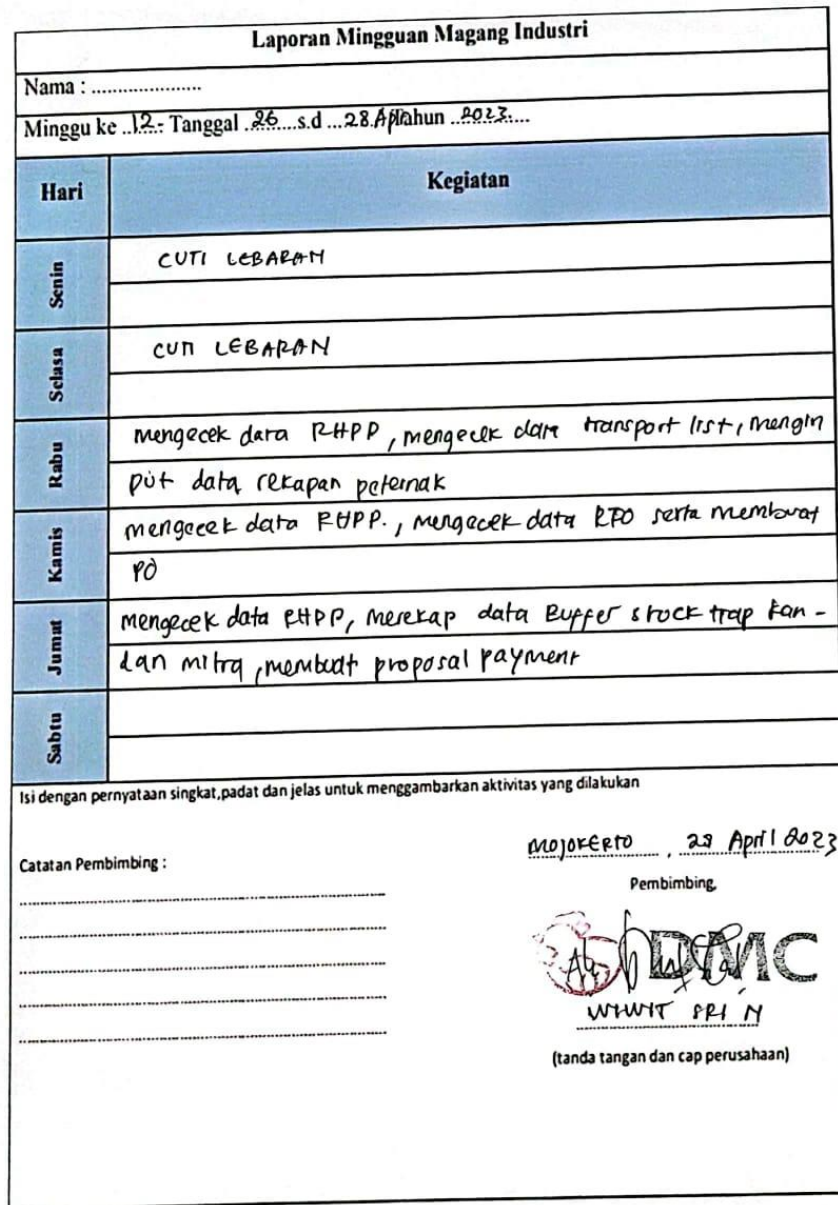 Laporan Mingguan Magang Industri
Nama : .....................
Minggu ke ..12.. Tanggal ..26.....s.d ...28.Apr Tahun ..2023....
Hari Kegiatan
Senin
CUTI LEBARAN
Selasa
CUTI LEBARAN
Rabu
mengecek data RHPP, mengecek data transport list, mengin
put data rekapan peternak
Kamis
mengecek data RHPP., mengecek data RPO serta membuat
PO
Jumat
mengecek data RHPP, merekap data Buffer stock trap kan-
dan mitra, membuat proposal payment
Sabtu
Isi dengan pernyataan singkat,padat dan jelas untuk menggambarkan aktivitas yang dilakukan
MOJOKERTO, 28 April 2023
Catatan Pembimbing :
Pembimbing,
DMC
WIWIT SRI N
(tanda tangan dan cap perusahaan)